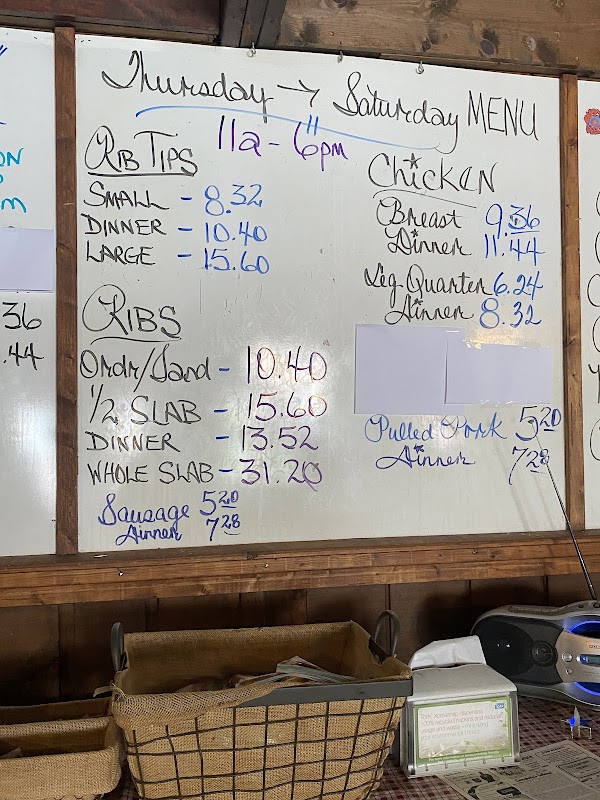 Thursday → Saturday MENU
11a - 6pm
RIB TIPS
SMALL - 8.32
DINNER - 10.40
LARGE - 15.60
RIBS
Ordr/Sand - 10.40
1/2 SLAB - 15.60
DINNER - 13.52
WHOLE SLAB - 31.20
Sausage 5.20
Dinner 7.28
Chicken
Breast 9.36
Dinner 11.44
Leg Quarter 6.24
Dinner 8.32
Pulled Pork 5.20
Dinner 7.28
ON
m
36
.44